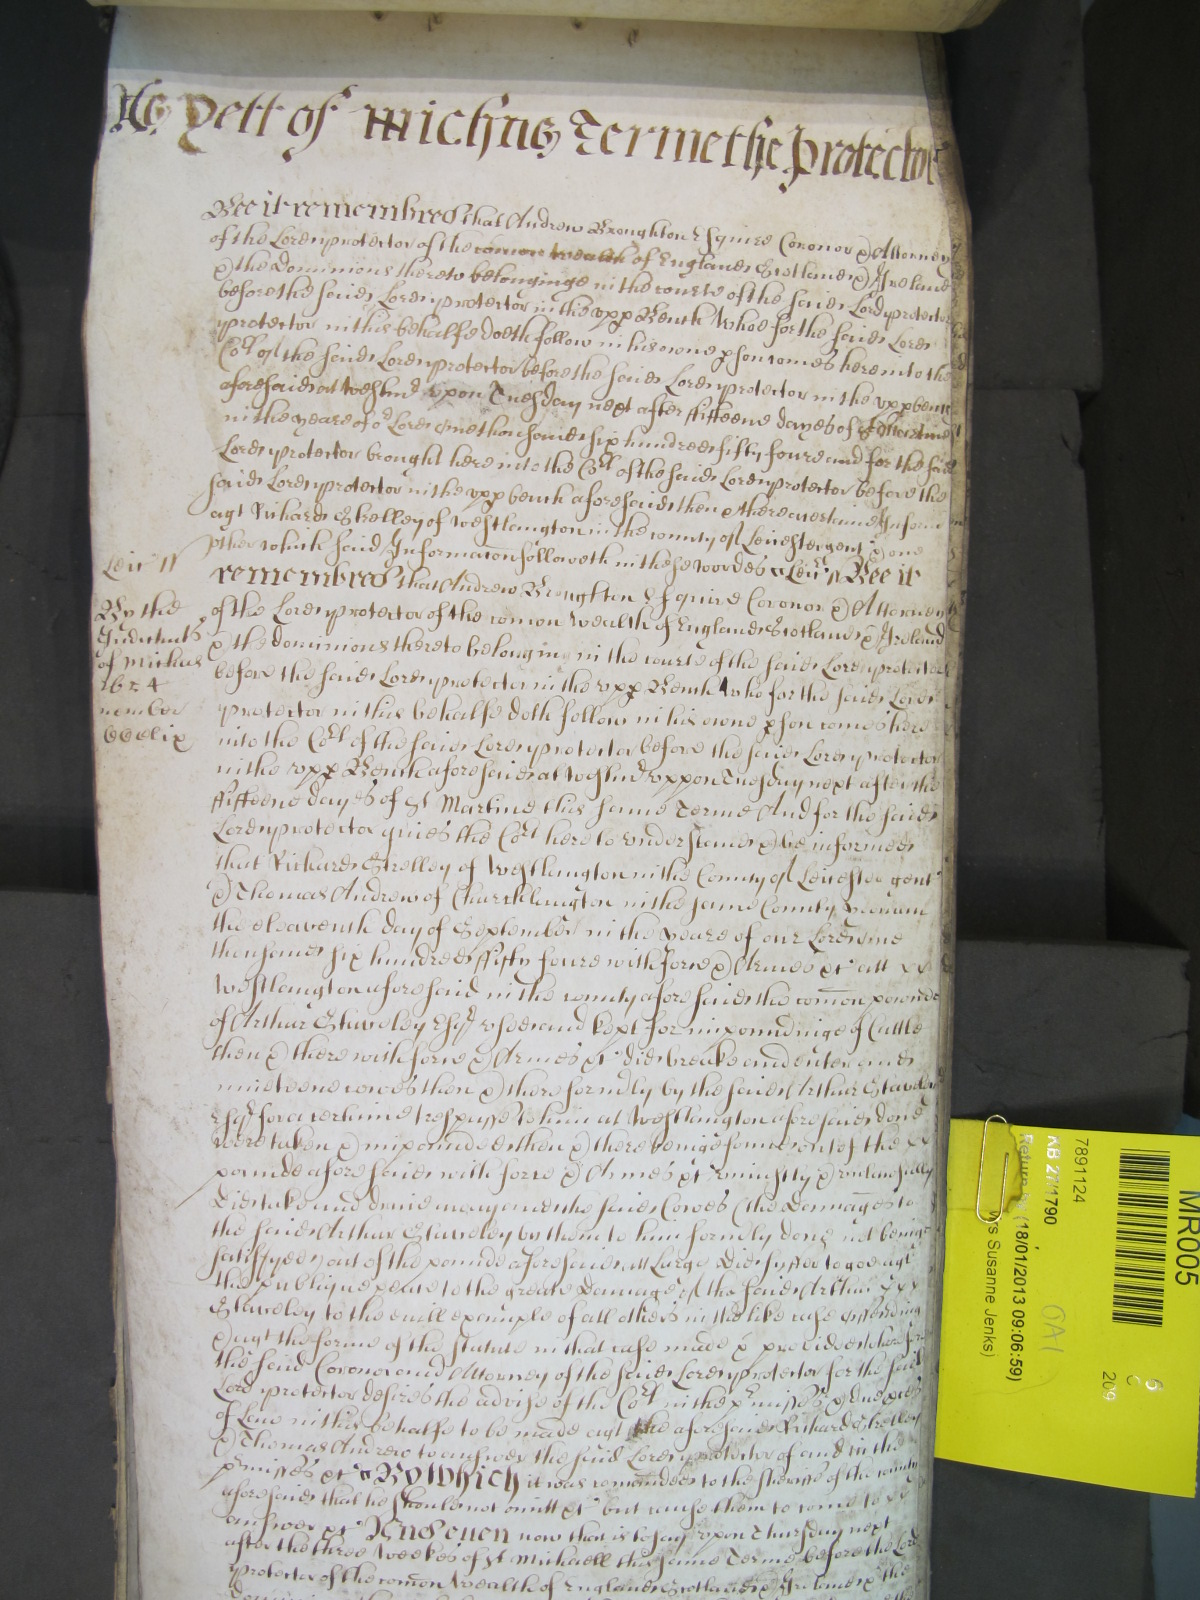 Yett of Mich'as Terme the Protector
Bee it remembred that Andrew Broughton Esquire Coronor & Attorney
of the Lord protector of the comon wealth of England Scotland & Ireland
& the Dominions thereto belonginge in the courte of the said Lord protector
before the said Lord protector in the upp Bench Who for the said Lord
protector in this behalfe doeth follow in his owne pson comes here into the
Cort of the said Lord protector before the said Lord protector in the upp bench
aforesaid at Westmr upon Tuesday next after fifteene dayes of St Martine
in the yeare of or Lord one thousand six hundred fifty foure and for the said
Lord protector brought here into the Cort of the said Lord protector before the
said Lord protector in the upp bench aforesaid then & there a certaine Informacon
agt Richard Strelley of Westlangton in the county of Leicester gent & one
other which said Informacon followeth in these wordes Leic' Bee it
remembred that Andrew Broughton Esquire Coronor & Attorney
of the Lord protector of the comon wealth of England Scotland & Ireland
& the dominions thereto belonging in the courte of the said Lord protector
before the said Lord protector in the upp Bench who for the said Lord
protector in this behalfe doth follow in his owne pson comes here
into the Cort of the said Lord protector before the said Lord protector
in the upp Bench aforesaid at Westmr uppon Tuesday next after the
fifteene dayes of St Martine this same Terme And for the said
Lord protector gives the Cort here to understand & be informed
that Richard Strelley of Westlangton in the County of Leicester gent
& Thomas Andrew of Churchlangton in the same County
the eleaventh day of September in the yeare of our Lord one
thousand six hundred fifty foure with force & Armes &c att
Westlangton aforesaid in the county aforesaid the comon pound
of Arthur Staveley Esqr used and kept for impoundinge of Cattle
then & there with force & Armes &c did breake and enter and
nineteene cowes then & there formerly by the said Arthur Staveley
Esqr for a certaine trespasse to him at Westlangton aforesaid done
were taken & impounded then & there beinge found out of the
pound aforesaid with force & Armes &c unjustly & unlawfully
did take and drive away and the said Cowes (the Dammages to
the said Arthur Staveley by them to him formerly done not beinge
satisfyed) out of the pound aforesaid att Large did suffer to goe agt
the publique peace to the greate Damage of the said Arthur
Staveley to the evill example of all others in the like case offending
& agt the forme of the Statute in that case made & provided wherefore
the said Coronor and Attorney of the said Lord protector for the said
Lord protector desires the advise of the Cort in the pmisses & due pces
of Law in this behalfe to be made agt the aforesaid Richard Strelley
& Thomas Andrew to answer the said Lord protector of and in the
pmisses &c By Which it was comanded to the Sheriffe of the county
aforesaid that he should not omitt &c but cause them to come to
answer &c And even now that is to say upon Thursday next
after the three Weekes of St Michaell this same Terme before the Lord
protector of the comon Wealth of England Scotland & Ireland & the
Leic'
By the
Indictmts
of Mich'as
1654
number
MR005
7891124
KB 27/1790
Return by (18/01/2013 09:06:59)
Susanne Jenks)
OA1
6
C
209